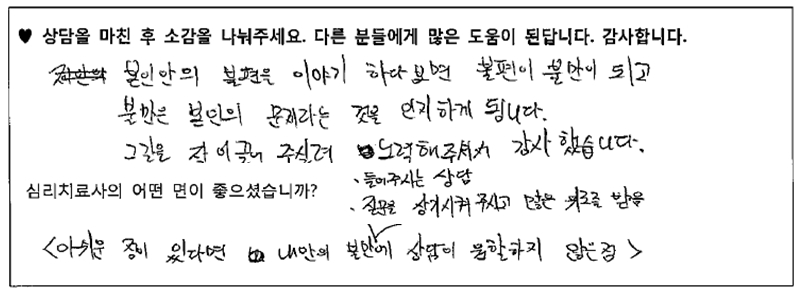 ♥ 상담을 마친 후 소감을 나눠주세요. 다른 분들에게 많은 도움이 된답니다. 감사합니다.
본인안의 불편을 이야기 하다보면 불편이 불만이 되고
불만은 본인의 문제라는 것을 인지하게 됩니다.
그길을 잘 이끌어 주실려 노력해주셔서 감사했습니다.
심리치료사의 어떤 면이 좋으셨습니까?
· 들어주시는 상담
· 질문을 상기시켜 주시고 많은 위로를 받음
<아쉬운 점이 있다면 내안의 불만에 상담이 원할하지 않은점>